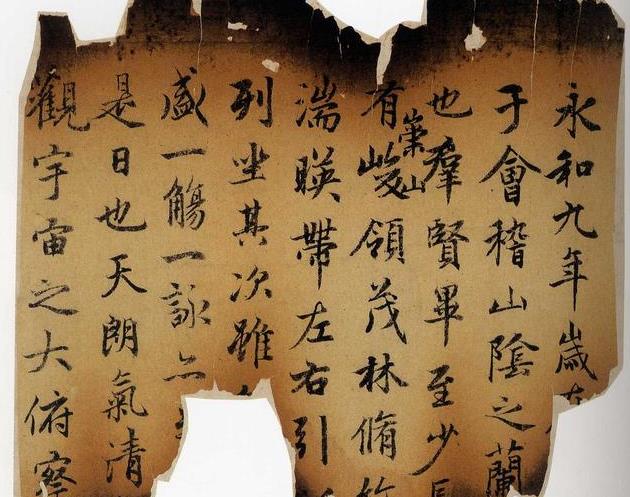 永和九年歲
于會稽山陰之蘭
也羣賢畢至少
有崇山峻領茂林脩
湍暎帶左右引
列坐其次雖
盛一觴一詠亦
是日也天朗氣清
觀宇宙之大俯察